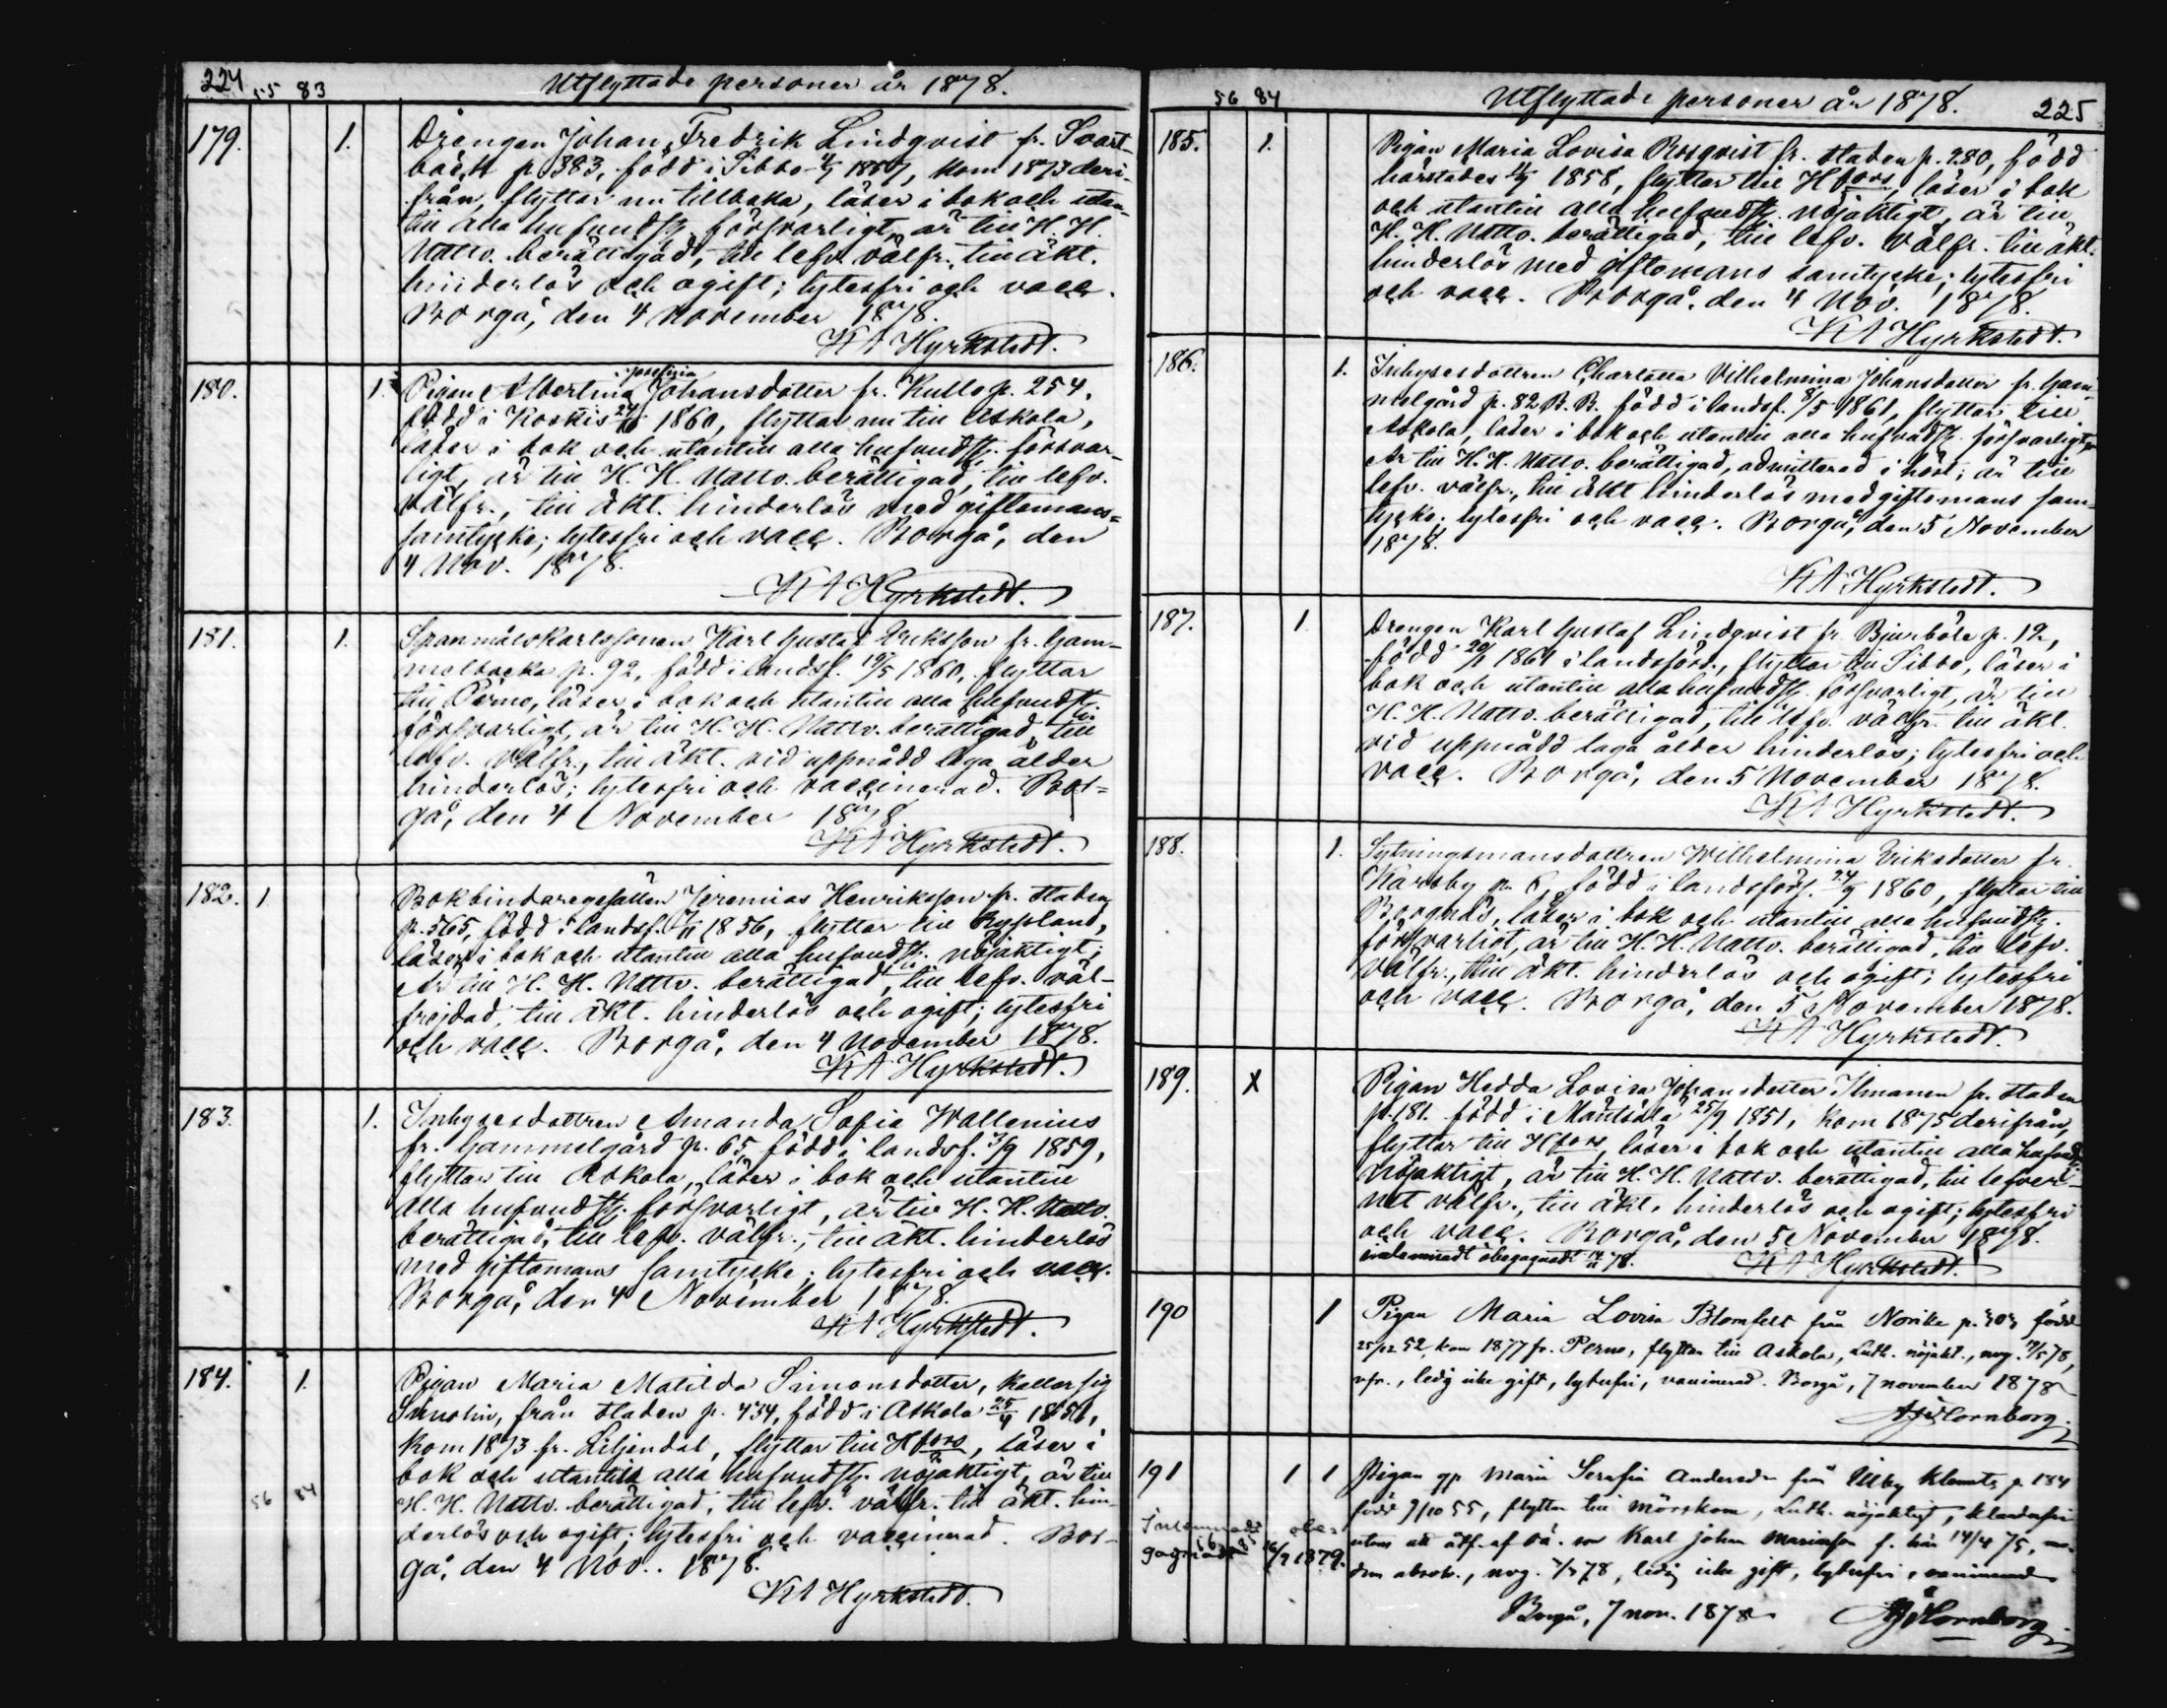 224 55 83 Utflyttade personer år 1878.
179. 1. Drengen Johan Fredrik Lindqvist fr. Svart-
bäck p. 383, född i Sibbo 1857, kom 1873 deri-
från, flyttar nu tillbaka, läser i bok och utan-
till alla hufvudst. försvarligt, är till H. H.
Nattv. berättigad, till lefv. välfr., till äkt.
hinderlös och ogift; lytesfri och vacc.
Borgå, den 4 November 1878.
KA Hyrkstedt.
180. 1. Pigan Albertina Josefina Johansdotter fr. Kullo p. 254,
född i Koskis 1860, flyttar nu till Askola,
läser i bok och utantill alla hufvudst. försvar-
ligt, är till H. H. Nattv. berättigad, till lefv.
välfr., till äkt. hinderlös med giftomans=
samtycke; lytesfri och vacc. Borgå, den
4 Nov. 1878.
KA Hyrkstedt.
181. 1. Spanmålskarlssonen Karl Gustaf Eriksson fr. Gam-
melbacka p. 92, född i landsf. 19/5 1860, flyttar
till Perno, läser i bok och utantill alla hufvudst.
försvarligt, är till H. H. Nattv. berättigad, till
lefv. välfr., till äkt. vid uppnådd laga ålder
hinderlös; lytesfri och vaccinerad. Bor=
gå, den 4 November 1878.
KA Hyrkstedt.
182. 1. Bokbindaregesällen Jeremias Henriksson fr. staden
p. 565, född i landsf. 1856, flyttar till Ryssland,
läser i bok och utantill alla hufvudst. nöjaktigt;
Är till H. H. Nattv. berättigad, till lefv. väl-
frejdad, till äkt. hinderlös och ogift; lytesfri
och vacc. Borgå, den 4 November 1878.
KA Hyrkstedt.
183. 1. Inhysesdottren Amanda Sofia Wallenius
fr. Gammelgård p. 65, född i landsf. 3/9 1859,
flyttar till Askola, läser i bok och utantill
alla hufvudst. försvarligt, är till H. H. Nattv.
berättigad, till lefv. välfr., till äkt. hinderlös
med giftomans samtycke; lytesfri och vacc.
Borgå, den 4 November 1878.
KA Hyrkstedt.
184. 1. Pigan Maria Matilda Simonsdotter, kallar sig
från staden p. 434, född i Askola 25/4
kom 1873 fr. Liljendal, flyttar till Hfors, läser i
bok och utantill alla hufvudst. nöjaktigt, är till
H. H. Nattv. berättigad, till lefv. välfr. till äkt. hin-
derlös och ogift; lytesfri och vaccinerad. Bor-
gå, den 4 Nov. 1878.
KA Hyrkstedt.
56 84
56 84 Utflyttade personer år 1878. 225
185. 1. Pigan Maria Lovisa Rosqvist fr. staden p. 280, född
härstädes 1858, flyttar till Hfors, läser i bok
och utantill alla hufvudst. nöjaktigt, är till
H. H. Nattv. berättigad, till lefv. välfr. till äkt.
hinderlös med giftomans samtycke; lytesfri
och vacc. Borgå, den 4 Nov. 1878.
KA Hyrkstedt.
186. 1. Inhysesdottren Charlotta Vilhelmina Johansdotter fr. Gam-
melgård p. 82 B. B. född i landsf. 8/5 1861, flyttar till
Askola, läser i bok och utantill alla hufvudst. försvarligt,
Är till H. H. Nattv. berättigad, admitterad i höst; är till
lefv. välfr., till äkt hinderlös med giftomans sam-
tycke; lytesfri och vacc. Borgå, den 5 November
1878.
KA Hyrkstedt.
187. 1 Drengen Karl Gustaf Lindqvist fr. Bjurböle p. 12,
född 1861 i landsförs., flyttar till Sibbo, läser i
bok och utantill alla hufvudst. försvarligt, är till
H. H. Nattv. berättigad, till lefv. välfr. till äkt.
vid uppnådd laga ålder hinderlös; lytesfri och
vacc. Borgå, den 5 November 1878.
KA Hyrkstedt.
188. 1. Sytningsmansdottren Wilhelmina Eriksdotter fr.
Karsby p. 6, född i landsförs. 1860, flyttar till
Borgnäs, läser i bok och utantill alla hufvudst.
försvarligt, är till H. H. Nattv. berättigad, till lefv.
välfr., till äkt. hinderlös och ogift; lytesfri
och vacc. Borgå, den 5 November 1878.
KA Hyrkstedt.
189. X Pigan Hedda Lovisa Johansdotter Ilmanen fr. staden
p. 181. född i Mäntsälä 25/9 1851, kom 1875 derifrån,
flyttar till Hfors, läser i bok och utantill alla hufvudst.
nöjaktigt, är till H. H. Nattv. berättigad, till lefver-
net välfr., till äkt. hinderlös och ogift; lytesfri
och vacc. Borgå, den 5 November 1878.
inlemnadt obegagnadt 78. KA Hyrkstedt.
190 1 Pigan Maria Lovisa Blomfelt från Norike p. född
25/12 52, kom 1877 fr. Perno, flyttar till Askola, Luth. nöjakt., nvg.
vfr., ledig icke gift, lytesfri, vaccinerad. Borgå, 7 november 1878
Hornborg.
191 1 1 Pigan Maria Serafia Andersdr från Illby Klements p. 184
född 7/10 55, flyttar till Mörskom, Luth. nöjaktigt, klanderfri
utom att af oä. son Karl Johan f. här 14/4 75,
absolv., nvg. ledig icke gift, lytesfri, vaccinerad
Borgå, 7 nov. 1878 Hornborg
Inlemnadt obe-
gagnadt 1879.